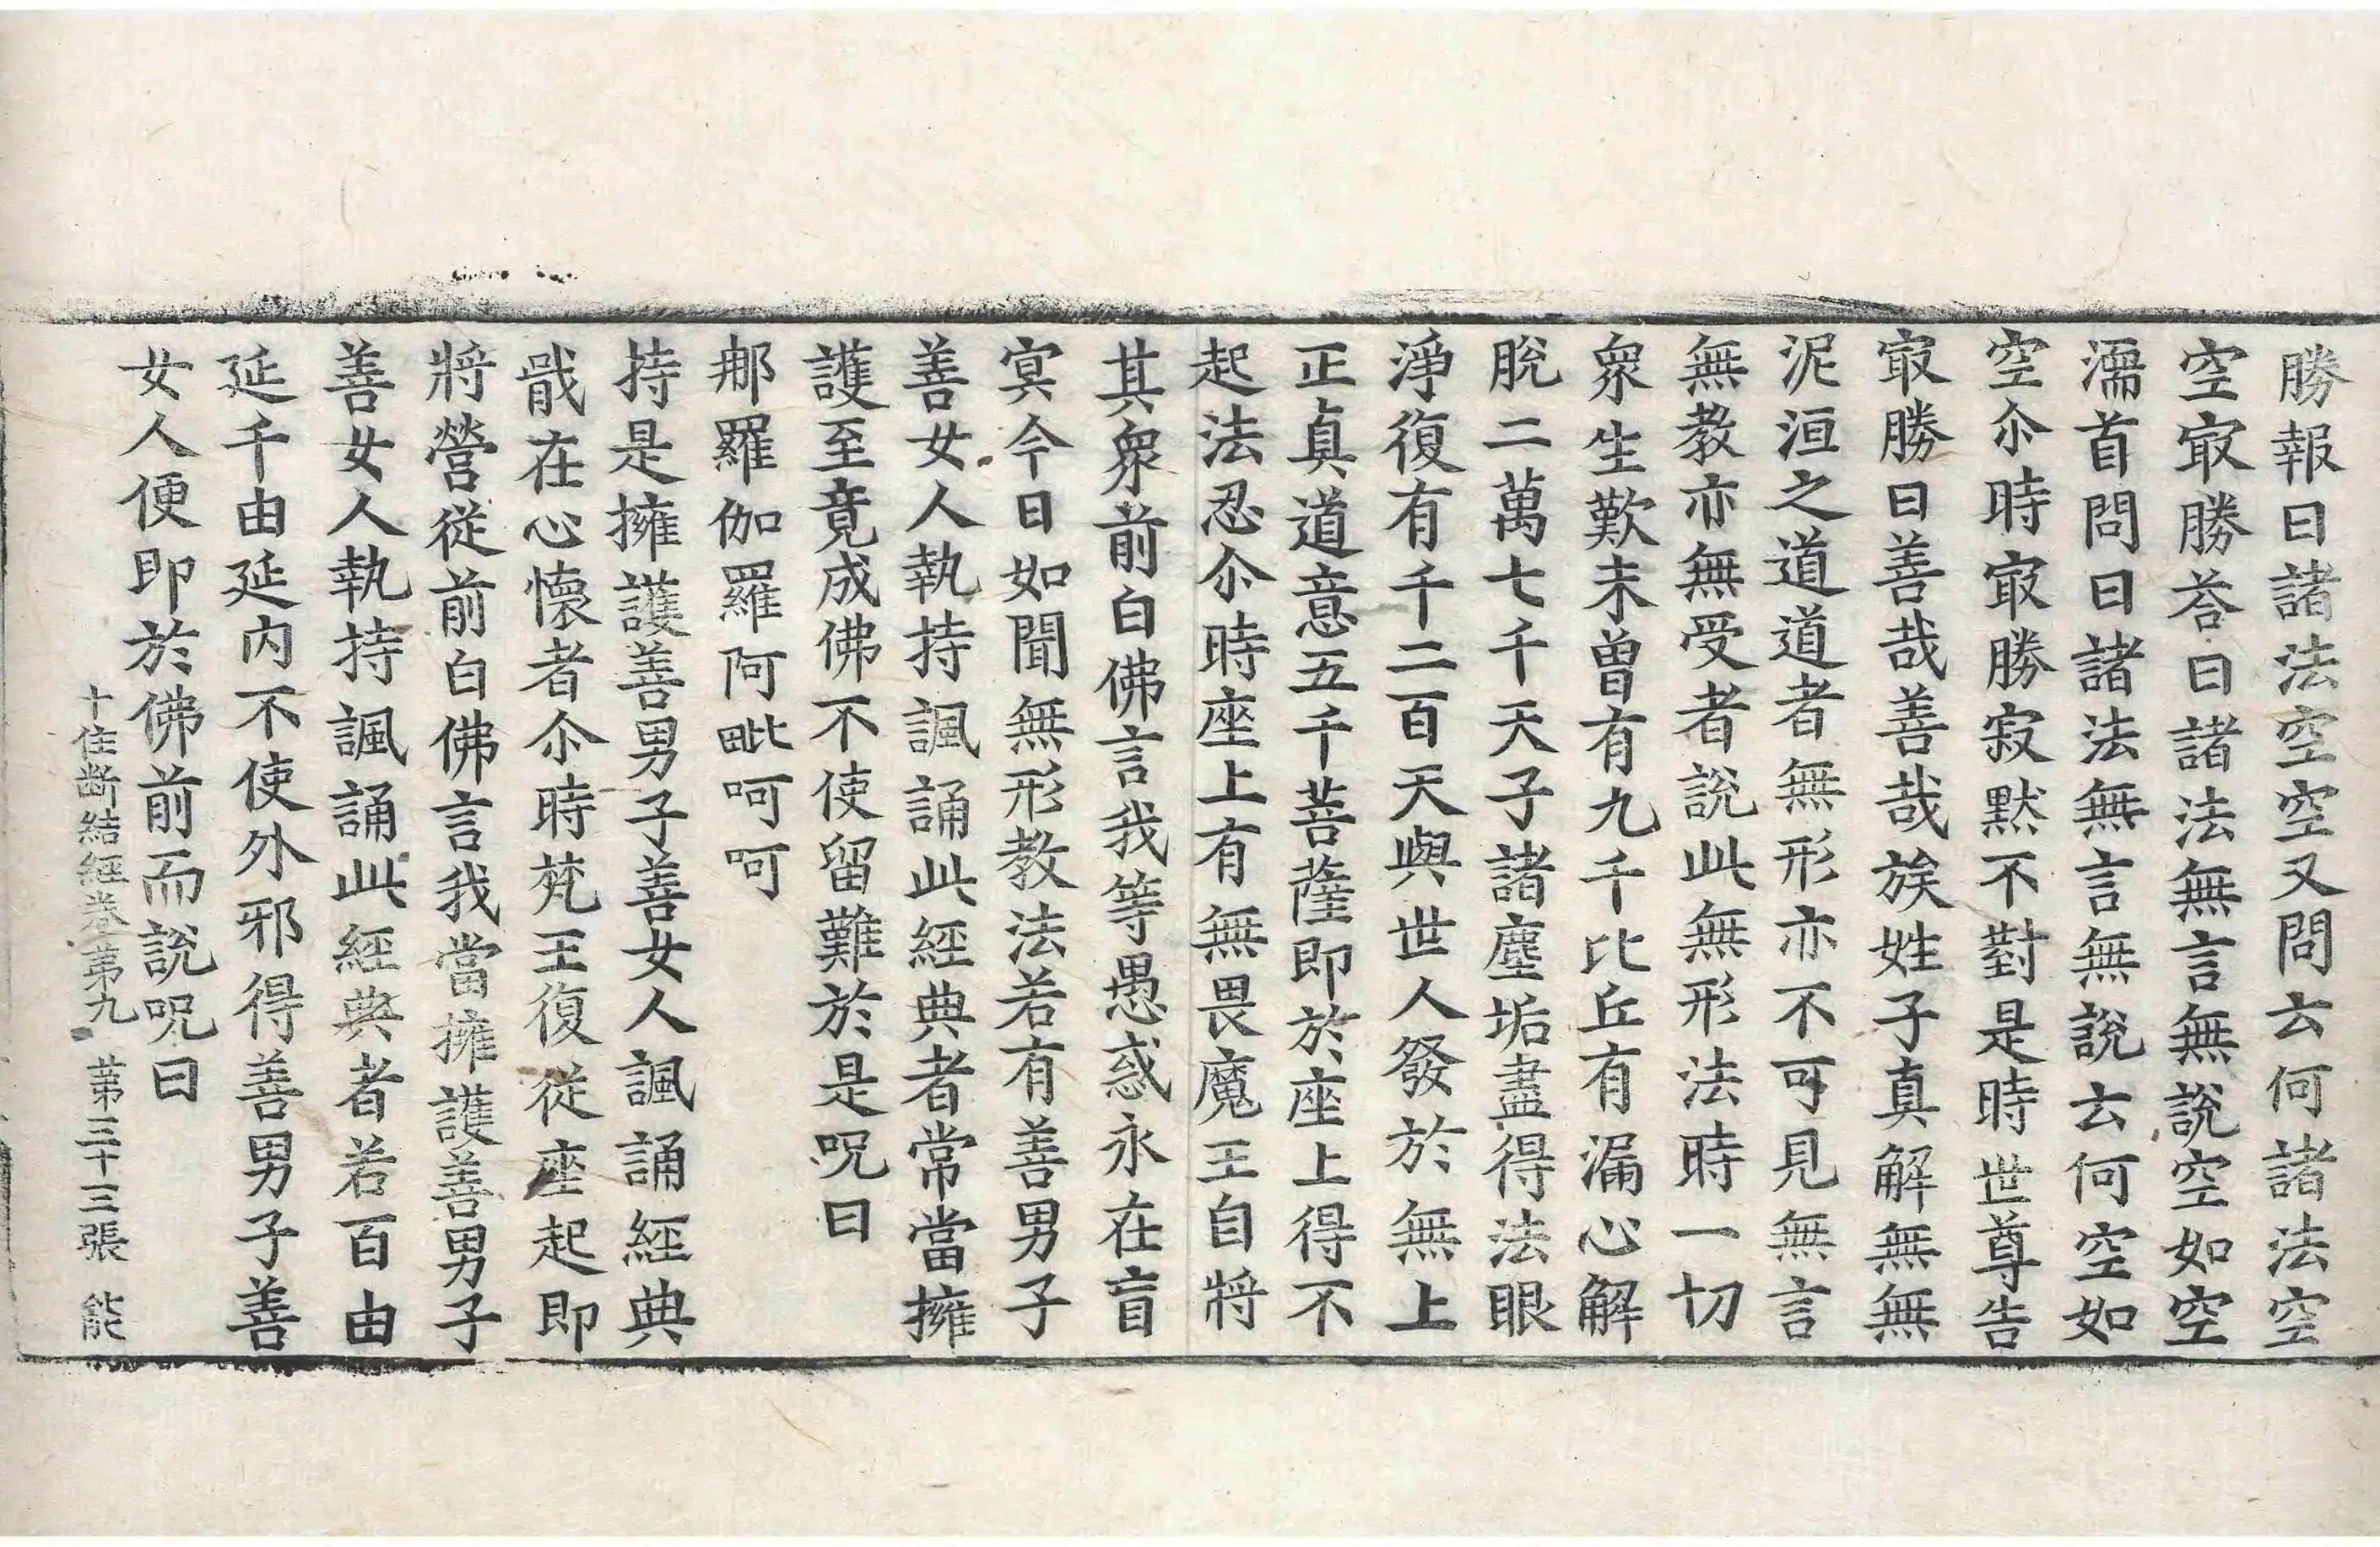 勝報曰諸法空空空又問云何諸法空
空㝡勝荅曰諸法無言無說空如空
濡首問曰諸法無言無說云何空如
空尒時㝡勝寂默不對是時世尊告
㝡勝曰善哉善哉族姓子真解無無
泥洹之道道者無形亦不可見無言
無教亦無受者說此無形法時一切
衆生歎未曾有九千比丘有漏心解
脫二萬七千天子諸塵垢盡得法眼
淨復有千二百天與世人發於無上
正真道意五千菩薩即於座上得不
起法忍尒時座上有無畏魔王自將
其衆前白佛言我等愚惑永在盲
冥今日如聞無形教法若有善男子
善女人執持諷誦此經典者常當擁
護至竟成佛不使留難於是呪曰
那羅伽羅阿毗呵呵
持是擁護善男子善女人諷誦經典
戢在心懷者尒時梵王復從座起即
將營從前白佛言我當擁護善男子
善女人執持諷誦此經典者若百由
延千由延内不使外邪得善男子善
女人便即於佛前而說呪曰
十住斷結經卷第九 第三十三張 能